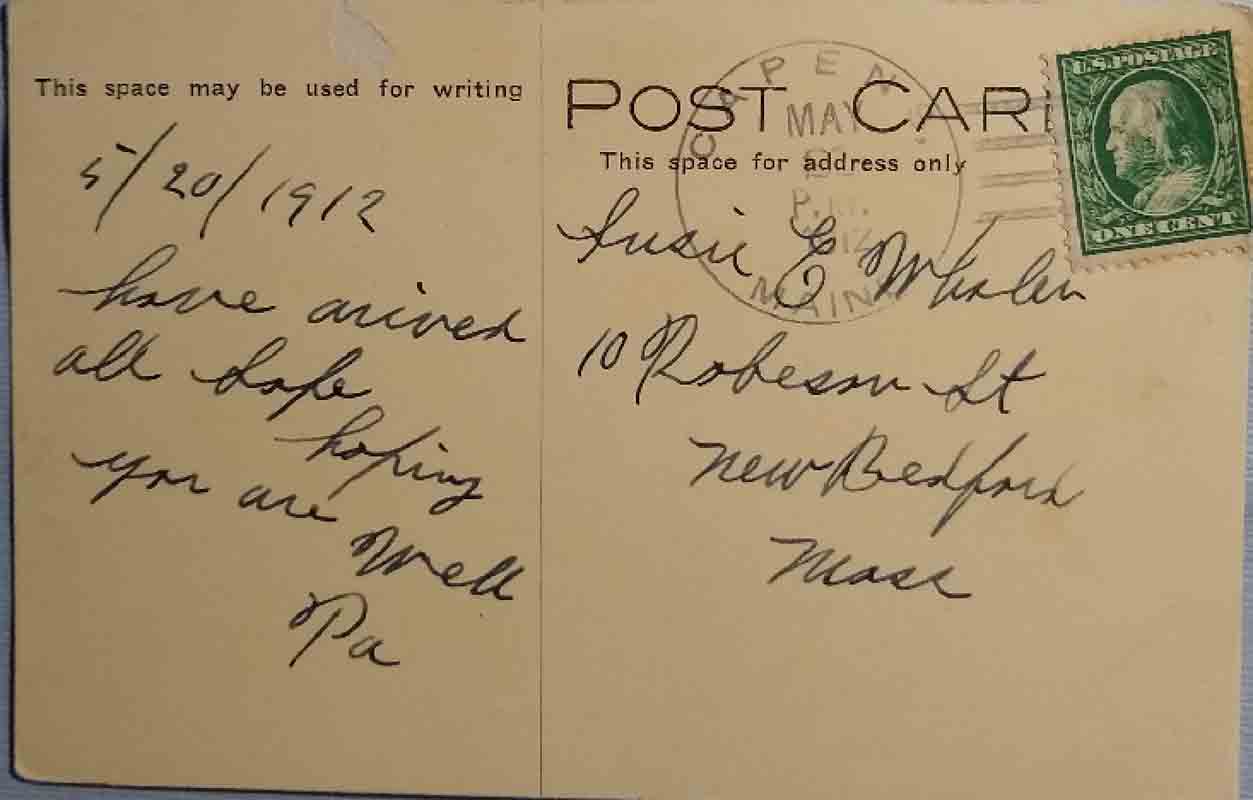 This space may be used for writing
5/20/1912
have arived
all safe
hoping
you are
Well
Pa
POST CAR
This space for address only
Susie E Whalen
10 Robeson St
New Bedford
Mass
MAY
P.M.
MAINE
U.S. POSTAGE
ONE CENT